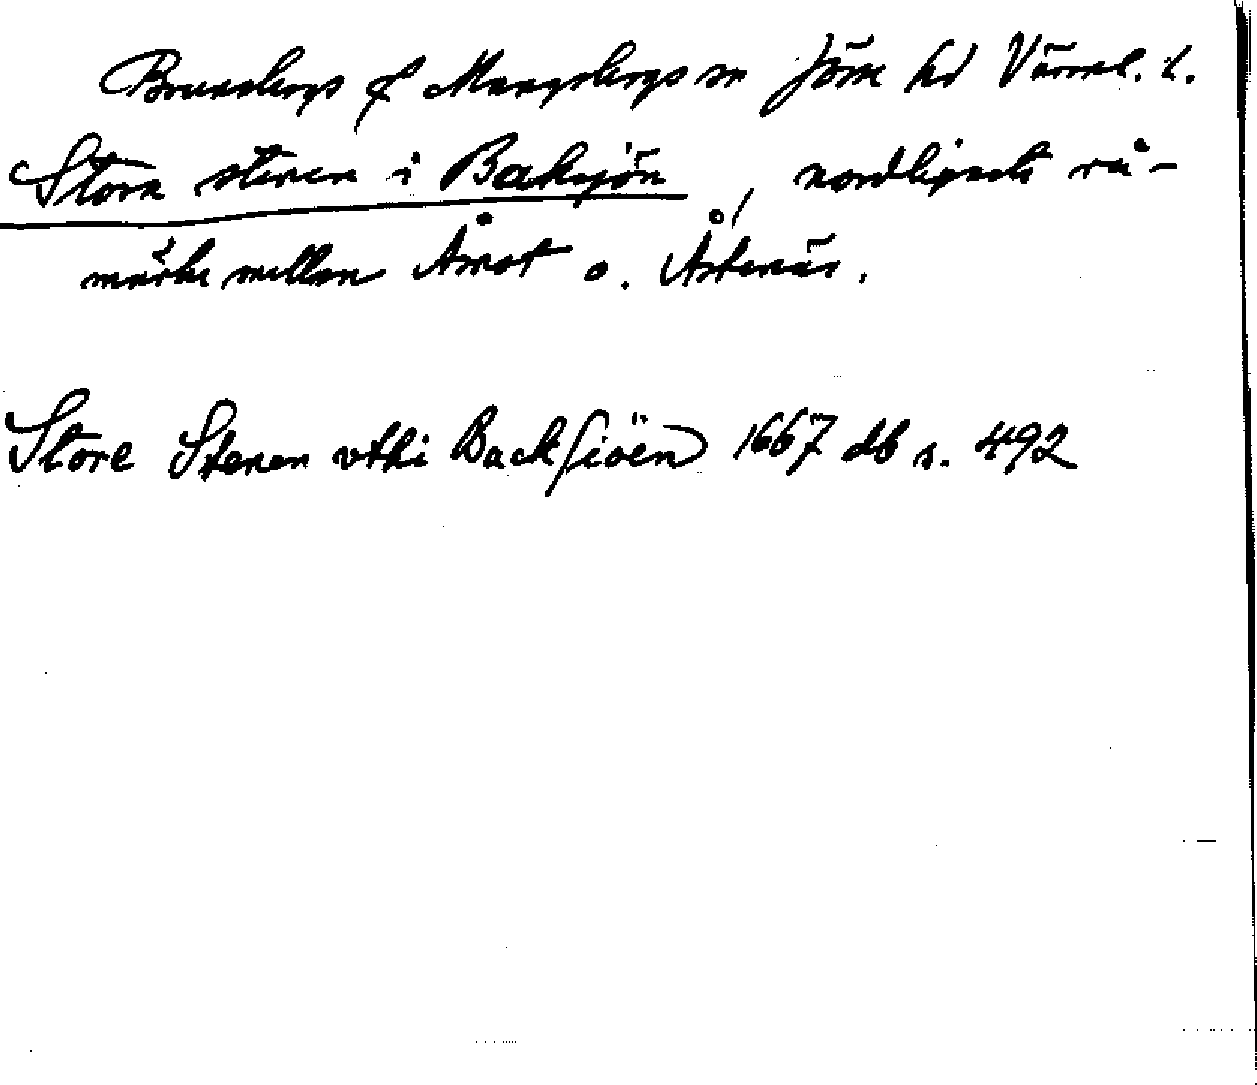 Brunsbergs f Mangsbergs sn Jösse hd Värml. l.
Stora stenen i Baksjön, nordligaste rå-
märke mellan Åmot o. Åstenäs.
Store Stenen vthi Backsiöen 1667 db s. 492